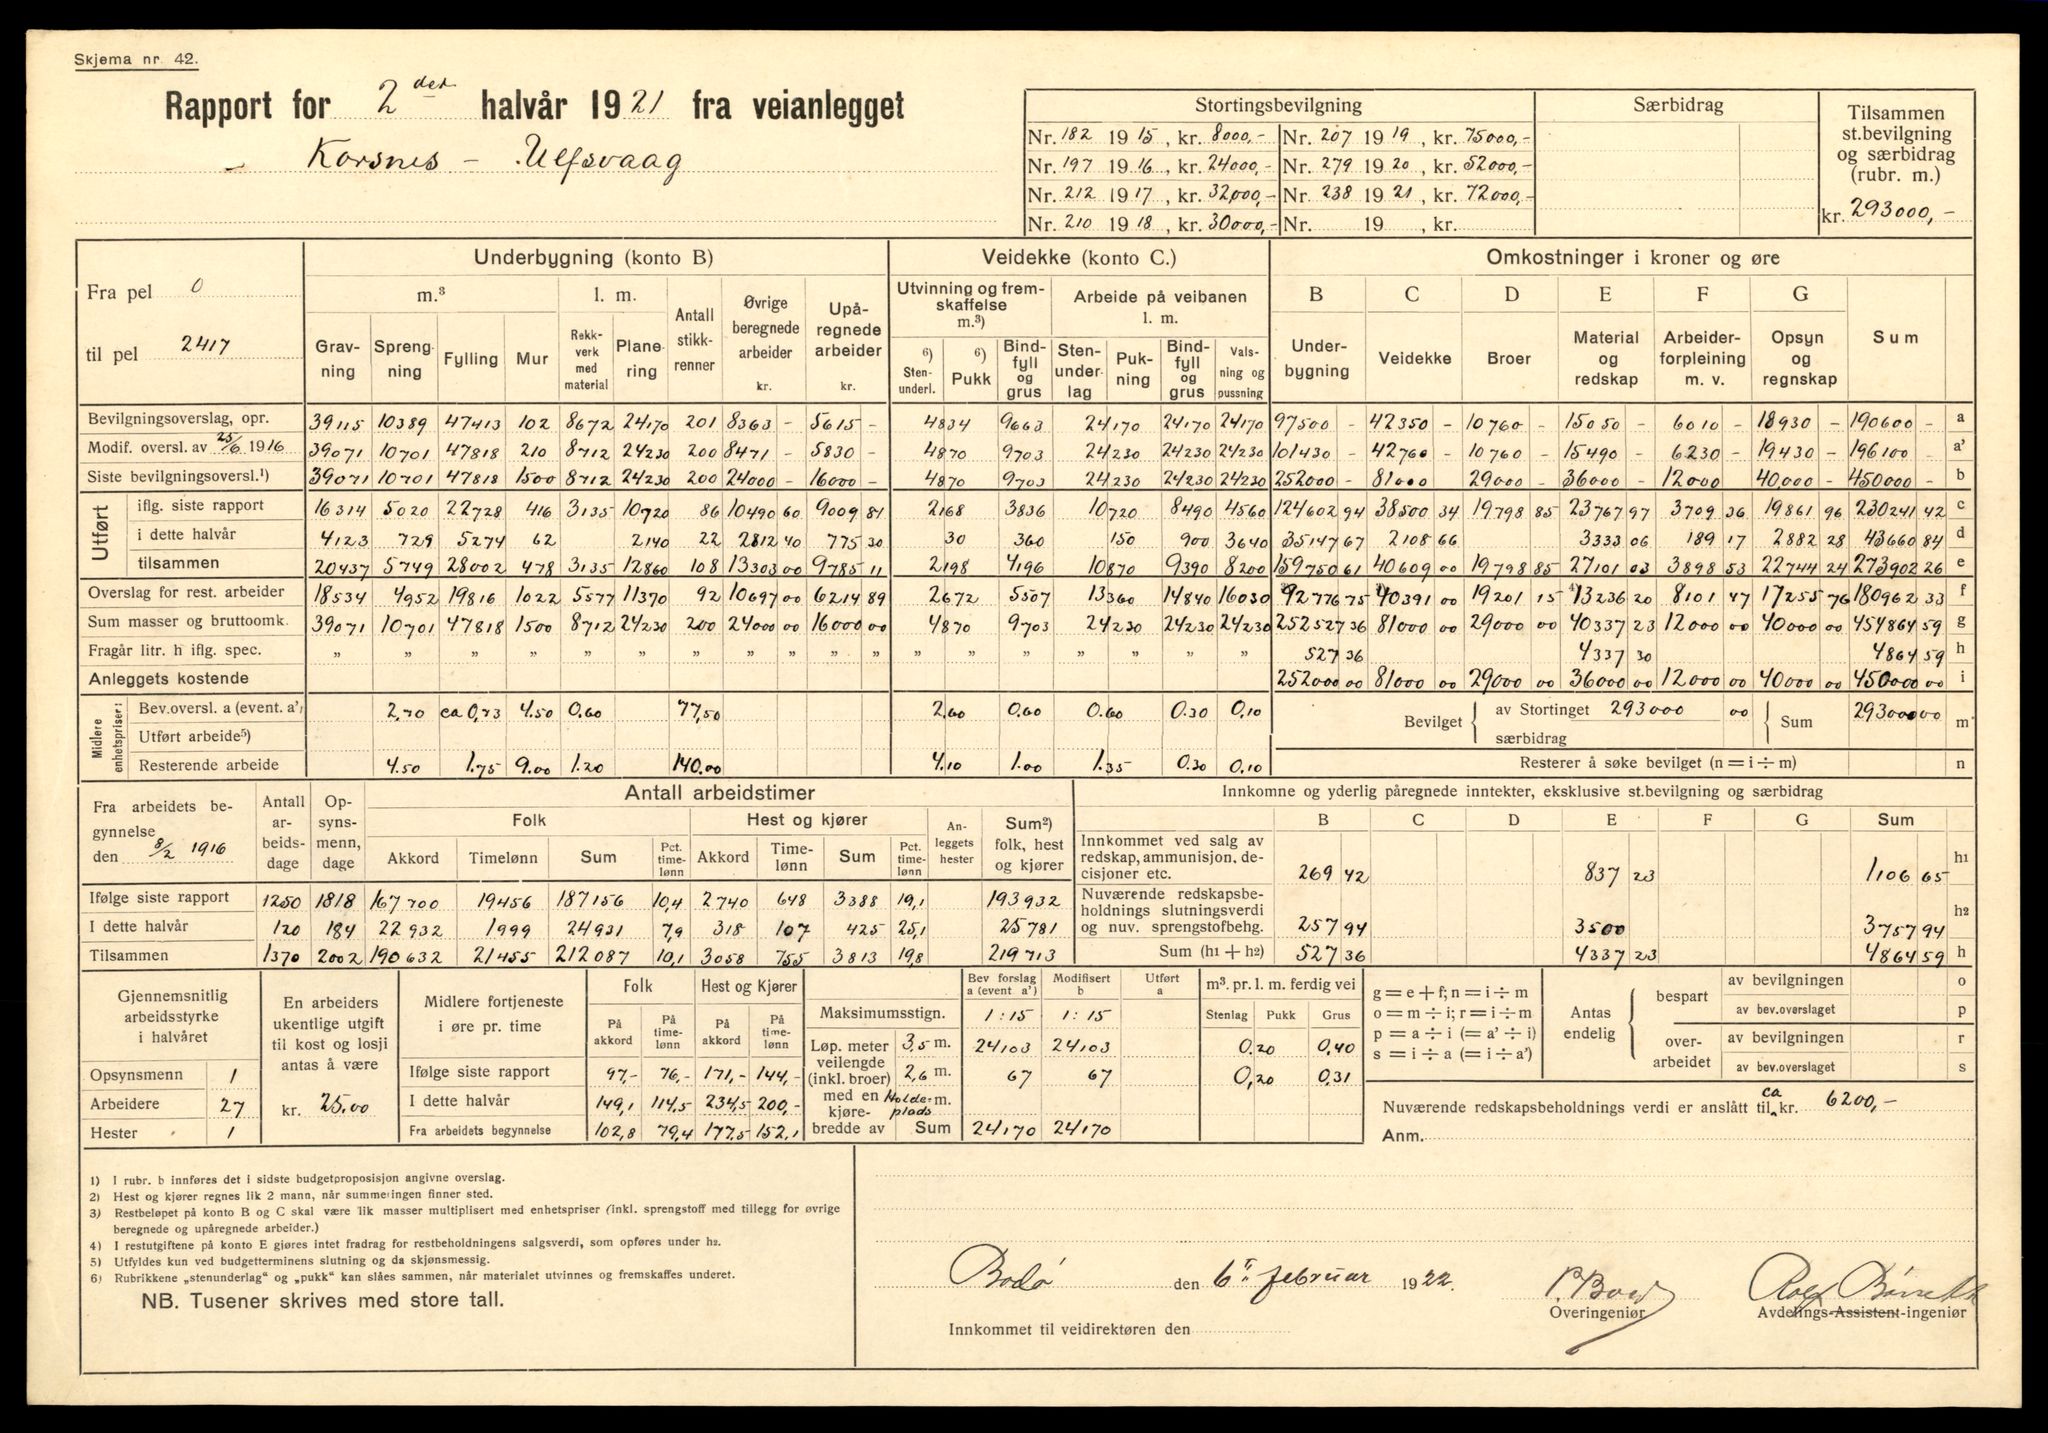 Skjema nr. 42.
Rapport for 2det halvår 1921 fra veianlegget
Korsnes - Ulfsvaag
Stortingsbevilgning | Særbidrag | Tilsammen st.bevilgning og særbidrag (rubr. m.)
Nr. 182 1915, kr. 8000,- | Nr. 207 1919, kr. 75000,-
Nr. 197 1916, kr. 24000,- | Nr. 279 1920, kr. 52000,-
Nr. 212 1917, kr. 32000,- | Nr. 238 1921, kr. 72000,-
Nr. 210 1918, kr. 30000,- | Nr. 19 , kr. | kr. 293000,-
Fra pel 0
til pel 2417
Underbygning (konto B) | Veidekke (konto C.) | Omkostninger i kroner og øre
m.³ | l. m. | Antall stikkrenner | Øvrige beregnede arbeider kr. | Upåregnede arbeider kr. | Utvinning og fremskaffelse m.³) | Arbeide på veibanen l. m. | B | C | D | E | F | G | Sum
Gravning | Sprengning | Fylling | Mur | Rekkverk med material | Planering | 6) Stenunderl. | 6) Pukk | Bindfyll og grus | Stenunderlag | Pukning | Bindfyll og grus | Valsning og pussning | Underbygning | Veidekke | Broer | Material og redskap | Arbeiderforpleining m. v. | Opsyn og regnskap
Bevilgningsoverslag, opr. | 39115 | 10389 | 47413 | 102 | 8672 | 24170 | 201 | 8363 - | 5615 - | 4834 | 9663 | 24170 | 24170 | 24170 | 97500 - | 42350 - | 10760 - | 15050 - | 6010 - | 18930 - | 190600 - | a
Modif. oversl. av 25/6 1916 | 39071 | 10701 | 47818 | 210 | 8712 | 24230 | 200 | 8471 - | 5830 - | 4870 | 9703 | 24230 | 24230 | 24230 | 101430 - | 42760 - | 10760 - | 15490 - | 6230 - | 19430 - | 196100 - | a'
Siste bevilgningsoversl.¹) | 39071 | 10701 | 47818 | 1500 | 8712 | 24230 | 200 | 24000 - | 16000 - | 4870 | 9703 | 24230 | 24230 | 24230 | 252000 - | 81000 - | 29000 - | 36000 - | 12000 - | 40,000 - | 450000 - | b
Utført
iflg. siste rapport | 16314 | 5020 | 22728 | 416 | 3135 | 10720 | 86 | 10490 60 | 9009 81 | 2168 | 3836 | 10720 | 8490 | 4560 | 124602 94 | 38500 34 | 19798 85 | 23767 97 | 3709 36 | 19861 96 | 230241 42 | c
i dette halvår | 4123 | 729 | 5274 | 62 | 2140 | 22 | 2812 40 | 775 30 | 30 | 360 | 150 | 900 | 3640 | 35147 67 | 2108 66 | 3333 06 | 189 17 | 2882 28 | 43660 84 | d
tilsammen | 20437 | 5749 | 28002 | 478 | 3135 | 12860 | 108 | 13303 00 | 9785 11 | 2198 | 4196 | 10870 | 9390 | 8200 | 159750 61 | 40609 00 | 19798 85 | 27101 03 | 3898 53 | 22744 24 | 273902 26 | e
Overslag for rest. arbeider | 18534 | 4952 | 19816 | 1022 | 5577 | 11370 | 92 | 10697 00 | 6214 89 | 2672 | 5507 | 13360 | 14840 | 16030 | 92776 75 | 40391 00 | 19201 15 | 4) 13236 20 | 8101 47 | 17255 76 | 180962 33 | f
Sum masser og bruttoomk. | 39071 | 10701 | 47818 | 1500 | 8712 | 24230 | 200 | 24000 00 | 16000 00 | 4870 | 9703 | 24230 | 24230 | 24230 | 252527 36 | 81000 00 | 29000 00 | 40337 23 | 12000 00 | 40000 00 | 454864 59 | g
Fragår litr. h iflg. spec. | „ | „ | „ | „ | „ | „ | „ | „ „ | „ „ | „ | „ | „ | „ | „ | „ | 527 36 | 4337 30 | 4864 59 | h
Anleggets kostende | 252000 00 | 81000 00 | 29000 00 | 36000 00 | 12000 00 | 40000 00 | 450000 00 | i
Midlere enhetspriser:
Bev.oversl. a (event. a') | 2,70 | ca 0,73 | 4.50 | 0.60 | 77,50 | 2.60 | 0.60 | 0.60 | 0.30 | 0,10 | Bevilget { av Stortinget 293000 00 | Sum | 293000 00 | m
Utført arbeide⁵) | særbidrag
Resterende arbeide | 4.50 | 1.75 | 9.00 | 1.20 | 140.00 | 4.10 | 1.00 | 1.35 | 0.30 | 0,10 | Resterer å søke bevilget (n = i ÷ m) | n
Fra arbeidets begynnelse den 8/2 1916 | Antall arbeidsdage | Opsynsmenn, dage | Antall arbeidstimer | Innkomne og yderlig påregnede inntekter, eksklusive st.bevilgning og særbidrag
Folk | Hest og kjører | Anleggets hester | Sum²) folk, hest og kjører | B | C | D | E | F | G | Sum
Akkord | Timelønn | Sum | Pct. timelønn | Akkord | Timelønn | Sum | Pct. timelønn | Innkommet ved salg av redskap, ammunisjon, decisjoner etc. | 269 42 | 837 23 | 1106 65 | h1
Ifølge siste rapport | 1250 | 1818 | 167700 | 19456 | 187156 | 10,4 | 2740 | 648 | 3388 | 19,1 | 193932 | Nuværende redskapsbeholdnings slutningsverdi og nuv. sprengstofbehg. | 257 94 | 3500 | 3757 94 | h2
I dette halvår | 120 | 184 | 22932 | 1999 | 24931 | 7,9 | 318 | 107 | 425 | 25,1 | 25781
Tilsammen | 1370 | 2002 | 190632 | 21455 | 212087 | 10,1 | 3058 | 755 | 3813 | 19,8 | 219713 | Sum (h1 + h2) | 527 36 | 4337 23 | 4864 59 | h
Gjennemsnitlig arbeidsstyrke i halvåret
Opsynsmenn 1
Arbeidere 27
Hester 1
En arbeiders ukentlige utgift til kost og losji antas å være
kr. 25.00
Midlere fortjeneste i øre pr. time | Folk | Hest og Kjører
På akkord | På timelønn | På akkord | På timelønn
Ifølge siste rapport | 97,- | 76,- | 171,- | 144,-
I dette halvår | 149,1 | 114,5 | 234,5 | 200,-
Fra arbeidets begynnelse | 102,8 | 79,4 | 177,5 | 152,1
Bev forslag a (event a') | Modifisert b | Utført a
Maksimumsstign. | 1:15 | 1:15
Løp. meter veilengde (inkl. broer) med en kjørebredde av
3,5 m. | 24103 | 24103
2,6 m. | 67 | 67
Holdeplads m.
Sum | 24170 | 24170
m³. pr. l. m. ferdig vei
Stenlag | Pukk | Grus
0,20 | 0,40
0,20 | 0,31
g = e + f; n = i ÷ m
o = m ÷ i; r = i ÷ m
p = a ÷ i (= a' ÷ i)
s = i ÷ a (= i ÷ a')
Antas endelig
bespart | av bevilgningen | o
av bev.overslaget | p
overarbeidet | av bevilgningen | r
av bev.overslaget | s
Nuværende redskapsbeholdnings verdi er anslått til ca kr. 6200,-
Anm.
1) I rubr. b innføres det i sidste budgetproposisjon angivne overslag.
2) Hest og kjører regnes lik 2 mann, når summeringen finner sted.
3) Restbeløpet på konto B og C skal være lik masser multiplisert med enhetspriser (inkl. sprengstoff med tillegg for øvrige
beregnede og upåregnede arbeider.)
4) I restutgiftene på konto E gjøres intet fradrag for restbeholdningens salgsverdi, som opføres under h2.
5) Utfyldes kun ved budgetterminens slutning og da skjønsmessig.
6) Rubrikkene „stenunderlag" og „pukk" kan slåes sammen, når materialet utvinnes og fremskaffes underet.
NB. Tusener skrives med store tall.
Bodø den 6te februar 1922.
Overingeniør
Avdelings-Assistent-ingeniør
Innkommet til veidirektøren den